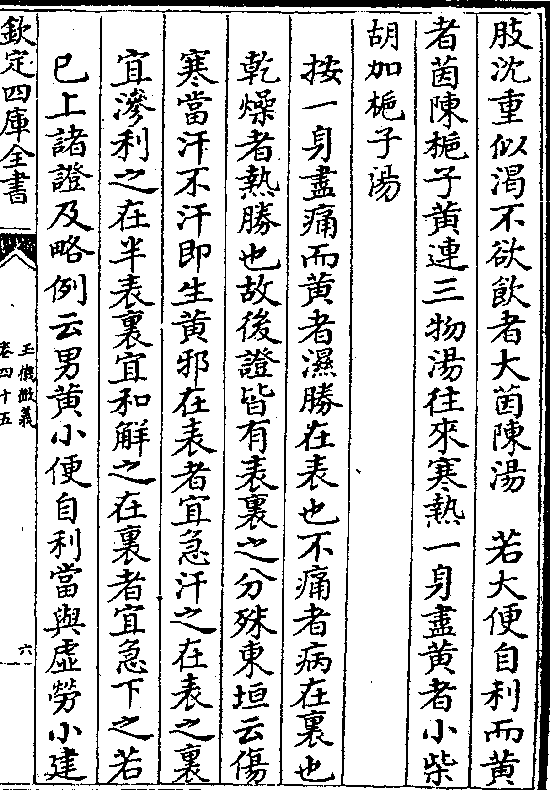 肢沈重似渴不欲飲者大茵陳湯　若大便自利而黄
者茵陳梔子黄連三物湯往來寒熱一身盡黄者小柴
胡加梔子湯
按一身盡痛而黄者濕勝在表也不痛者病在裏也
乾燥者熱勝也故後證皆有表裏之分殊東垣云傷
寒當汗不汗即生黄邪在表者宜急汗之在表之裏
宜滲利之在半表裏宜和解之在裏者宜急下之若
已上諸證及略例云男黄小便自利當與虚勞小建
欽定四庫全書
玉機微義
卷四十五
六